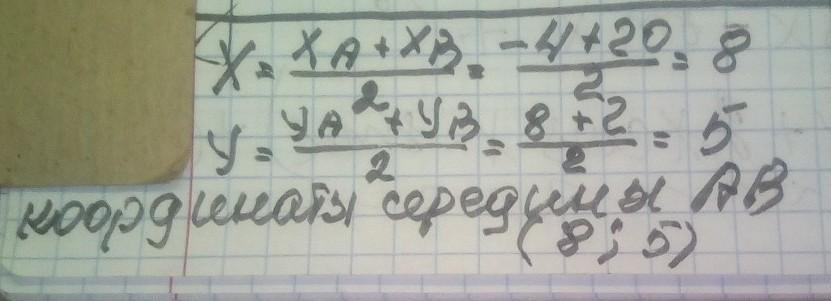 X = (XA + XB)/2 = (-4+20)/2 = 8
y = (yA + yB)/2 = (8+2)/2 = 5
координаты середины AB
(8; 5)